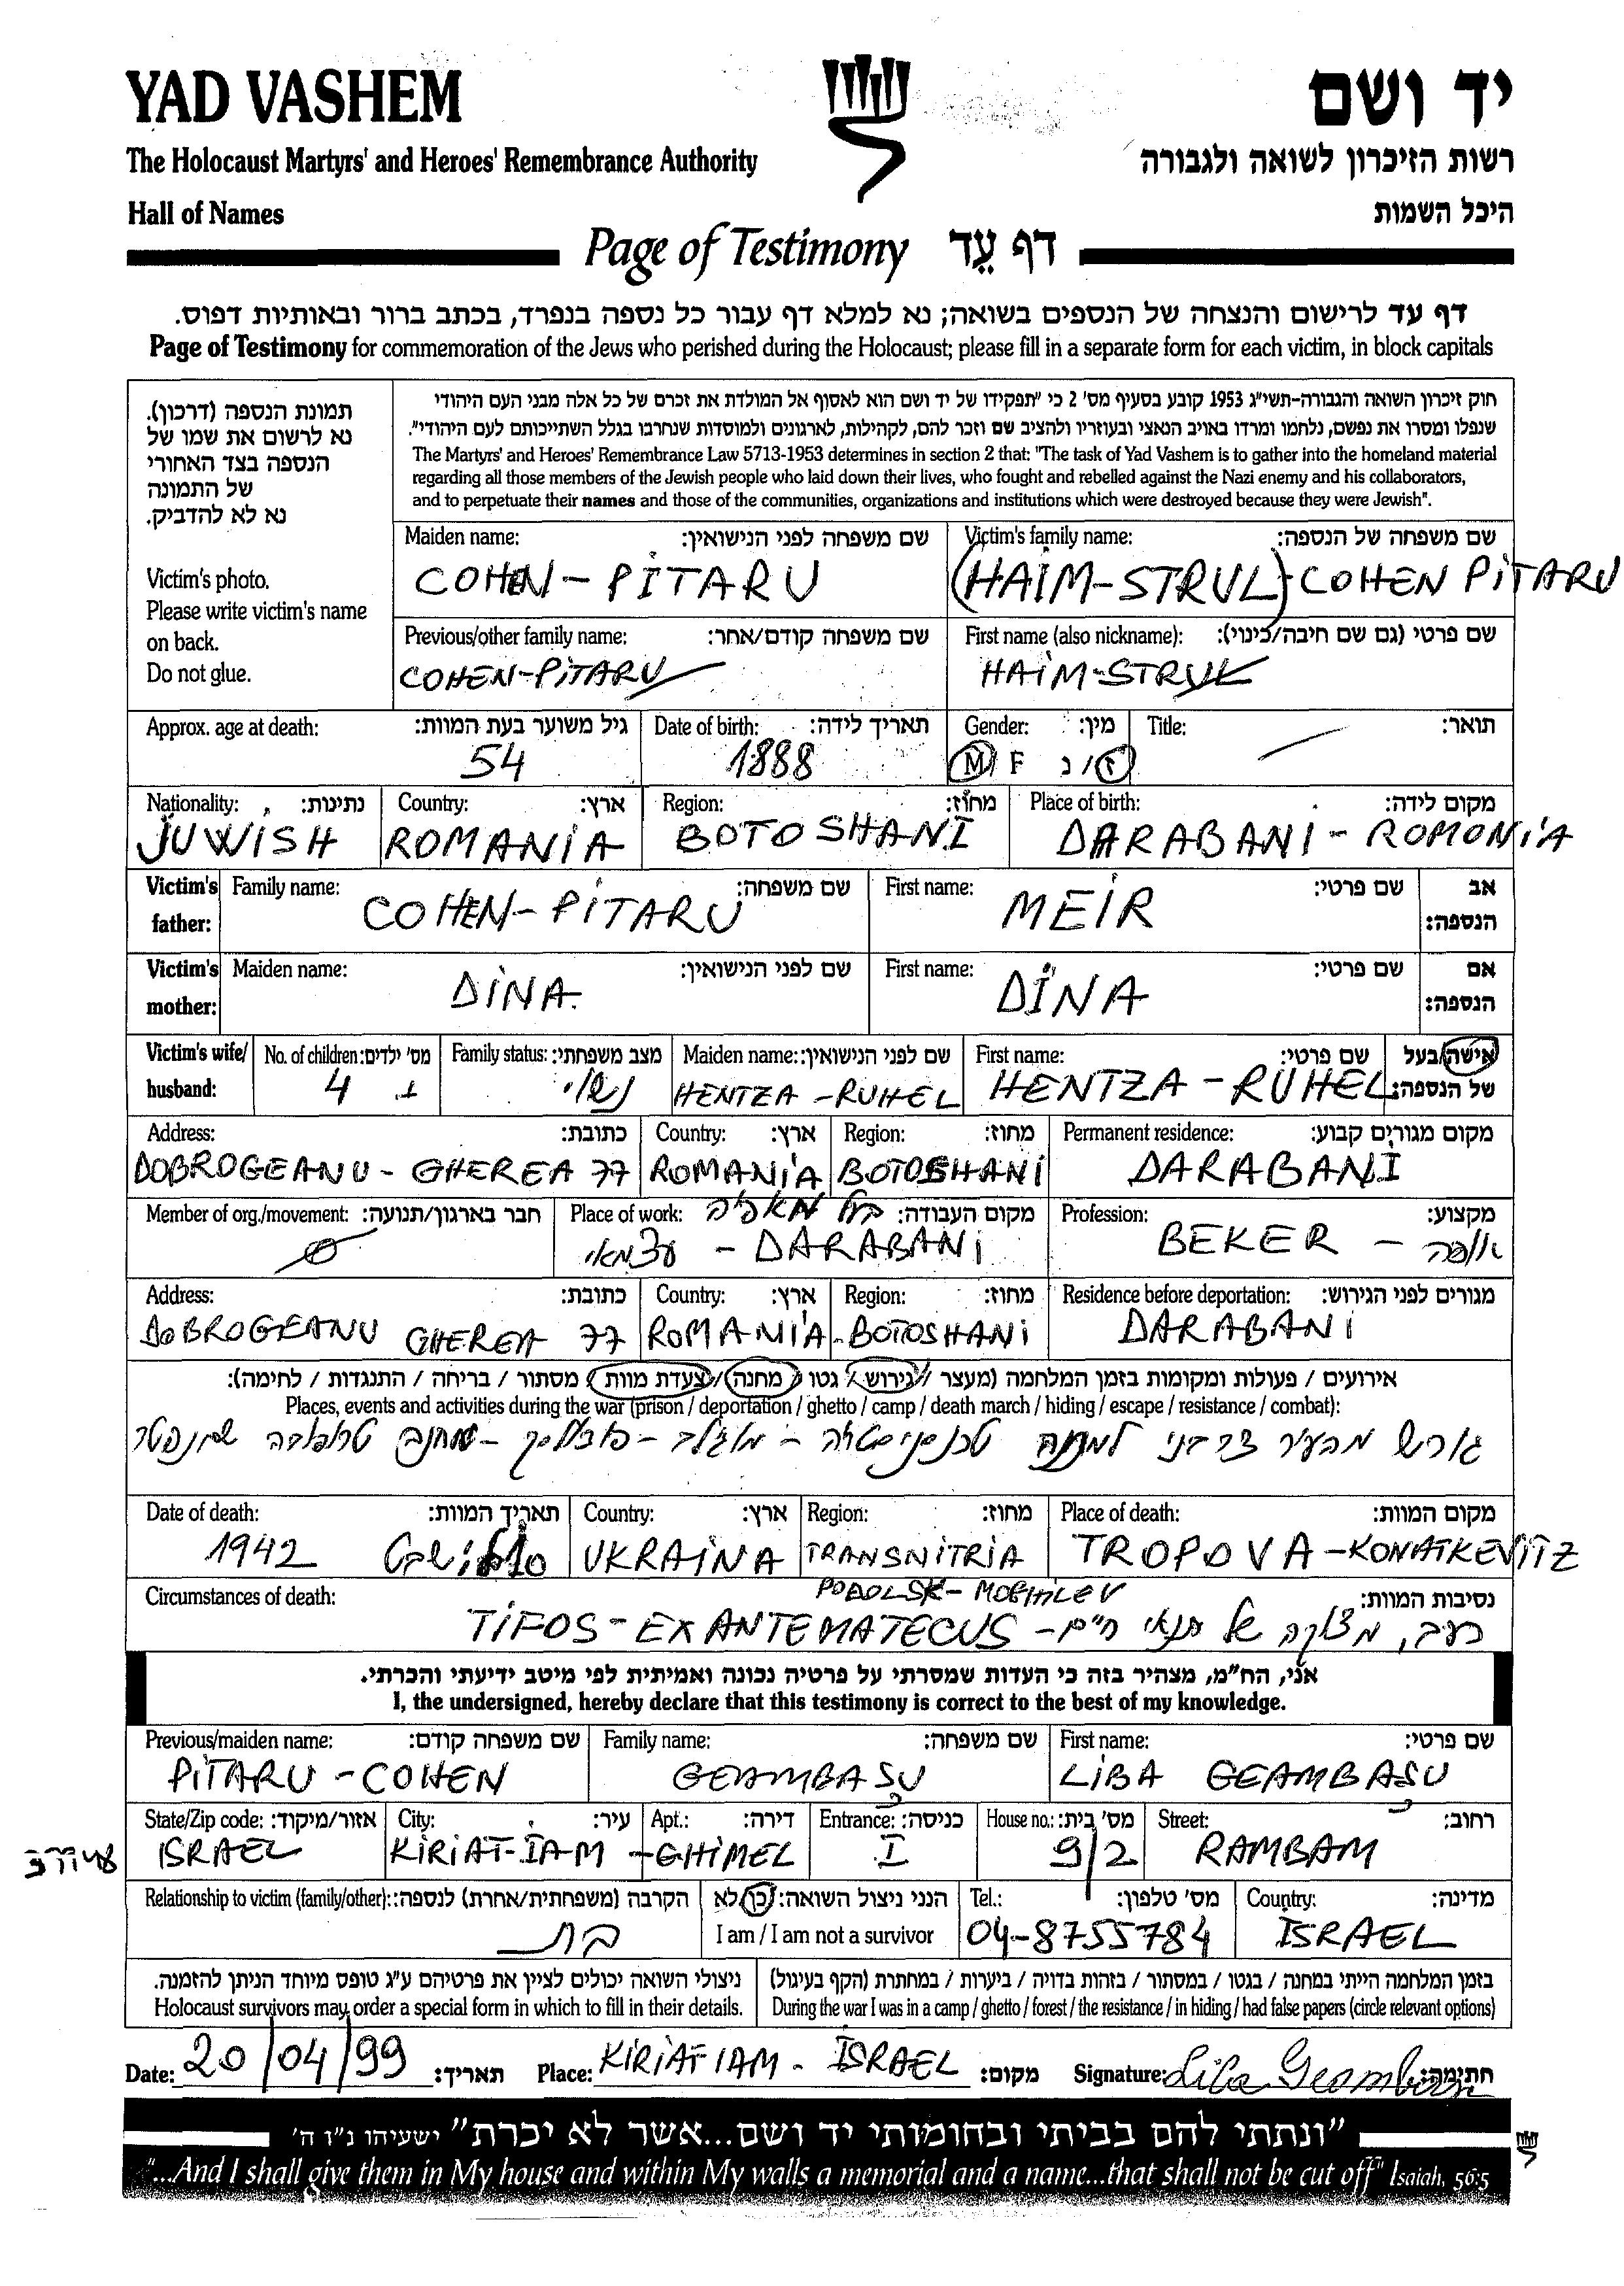 YAD VASHEM
יד ושם
The Holocaust Martyrs' and Heroes' Remembrance Authority
רשות הזיכרון לשואה ולגבורה
Hall of Names
היכל השמות
Page of Testimony דף עֵד
דף עד לרישום והנצחה של הנספים בשואה; נא למלא דף עבור כל נספה בנפרד, בכתב ברור ובאותיות דפוס.
Page of Testimony for commemoration of the Jews who perished during the Holocaust; please fill in a separate form for each victim, in block capitals
תמונת הנספה (דרכון).
נא לרשום את שמו של
הנספה בצד האחורי
של התמונה
נא לא להדביק.
Victim's photo.
Please write victim's name
on back.
Do not glue.
חוק זיכרון השואה והגבורה-תשי"ג 1953 קובע בסעיף מס' 2 כי "תפקידו של יד ושם הוא לאסוף אל המולדת את זכרם של כל אלה מבני העם היהודי
שנפלו ומסרו את נפשם, נלחמו ומרדו באויב הנאצי ובעוזריו ולהציב שם וזכר להם, לקהילות, לארגונים ולמוסדות שנחרבו בגלל השתייכותם לעם היהודי".
The Martyrs' and Heroes' Remembrance Law 5713-1953 determines in section 2 that: "The task of Yad Vashem is to gather into the homeland material
regarding all those members of the Jewish people who laid down their lives, who fought and rebelled against the Nazi enemy and his collaborators,
and to perpetuate their names and those of the communities, organizations and institutions which were destroyed because they were Jewish".
Maiden name: שם משפחה לפני הנישואין:
COHEN-PITARU
Victim's family name: שם משפחה של הנספה:
(HAIM-STRUL) COHEN PITARU
Previous/other family name: שם משפחה קודם/אחר:
COHEN-PITARU
First name (also nickname): שם פרטי (גם שם חיבה/כינוי):
HAIM-STRUL
Approx. age at death: גיל משוער בעת המוות:
54
Date of birth: תאריך לידה:
1888
Gender: מין:
M F ז/נ
Title: תואר:
Nationality: נתינות:
JUWISH
Country: ארץ:
ROMANIA
Region: מחוז:
BOTOSHANI
Place of birth: מקום לידה:
DARABANI - ROMONIA
Victim's father: Family name: שם משפחה:
COHEN-PITARU
First name: שם פרטי: אב הנספה:
MEIR
Victim's mother: Maiden name: שם לפני הנישואין:
DINA
First name: שם פרטי: אם הנספה:
DINA
Victim's wife/husband: No. of children: מס' ילדים:
4
Family status: מצב משפחתי:
נשוי
Maiden name: שם לפני הנישואין:
HENTZA-RUHEL
First name: שם פרטי: אישה/בעל של הנספה:
HENTZA-RUHEL
Address: כתובת:
DOBROGEANU-GHEREA 77
Country: ארץ:
ROMANIA
Region: מחוז:
BOTOSHANI
Permanent residence: מקום מגורים קבוע:
DARABANI
Member of org./movement: חבר בארגון/תנועה:
Place of work: מקום העבודה: בעל מאפיה
עצמאי - DARABANI
Profession: מקצוע:
BEKER - אופה
Address: כתובת:
DOBROGEANU GHEREA 77
Country: ארץ:
ROMANIA
Region: מחוז:
BOTOSHANI
Residence before deportation: מגורים לפני הגירוש:
DARABANI
אירועים / פעולות ומקומות בזמן המלחמה (מעצר / גירוש / גטו / מחנה / צעדת מוות / מסתור / בריחה / התנגדות / לחימה):
Places, events and activities during the war (prison / deportation / ghetto / camp / death march / hiding / escape / resistance / combat):
גורש מהעיר דרבני למחנה טרנסניסטריה - מוגילב - פודולסק - שנפטר
Date of death: תאריך המוות:
1942
Country: ארץ:
UKRAINA
Region: מחוז:
TRANSNITRIA
Place of death: מקום המוות:
TROPOVA-KONATKEVITZ
PODOLSK-MOGHILEV
Circumstances of death: נסיבות המוות:
TIFOS-EXANTEMATECUS - רעב, מצוקה של תנאי חיים
אני, הח"מ, מצהיר בזה כי העדות שמסרתי על פרטיה נכונה ואמיתית לפי מיטב ידיעתי והכרתי.
I, the undersigned, hereby declare that this testimony is correct to the best of my knowledge.
Previous/maiden name: שם משפחה קודם:
PITARU-COHEN
Family name: שם משפחה:
GEAMBAȘU
First name: שם פרטי:
LIBA GEAMBAȘU
State/Zip code: אזור/מיקוד:
ISRAEL
City: עיר:
KIRIAT-IAM
Apt.: דירה:
-GHIMEL
Entrance: כניסה:
I
House no.: מס' בית:
9/2
Street: רחוב:
RAMBAM
Relationship to victim (family/other): הקרבה (משפחתית/אחרת) לנספה:
בת
הנני ניצול השואה: כן לא
I am / I am not a survivor
Tel.: מס' טלפון:
04-8755784
Country: מדינה:
ISRAEL
ניצולי השואה יכולים לציין את פרטיהם ע"ג טופס מיוחד הניתן להזמנה.
Holocaust survivors may order a special form in which to fill in their details.
בזמן המלחמה הייתי במחנה / בגטו / במסתור / בזהות בדויה / ביערות / במחתרת (הקף בעיגול)
During the war I was in a camp / ghetto / forest / the resistance / in hiding / had false papers (circle relevant options)
Date: 20/04/99 תאריך: Place: KIRIAT IAM - ISRAEL מקום: Signature: Liba Geambasu חתימה:
"ונתתי להם בביתי ובחומותי יד ושם...אשר לא יכרת" ישעיהו נ"ו ה'
"...And I shall give them in My house and within My walls a memorial and a name...that shall not be cut off" Isaiah, 56:5